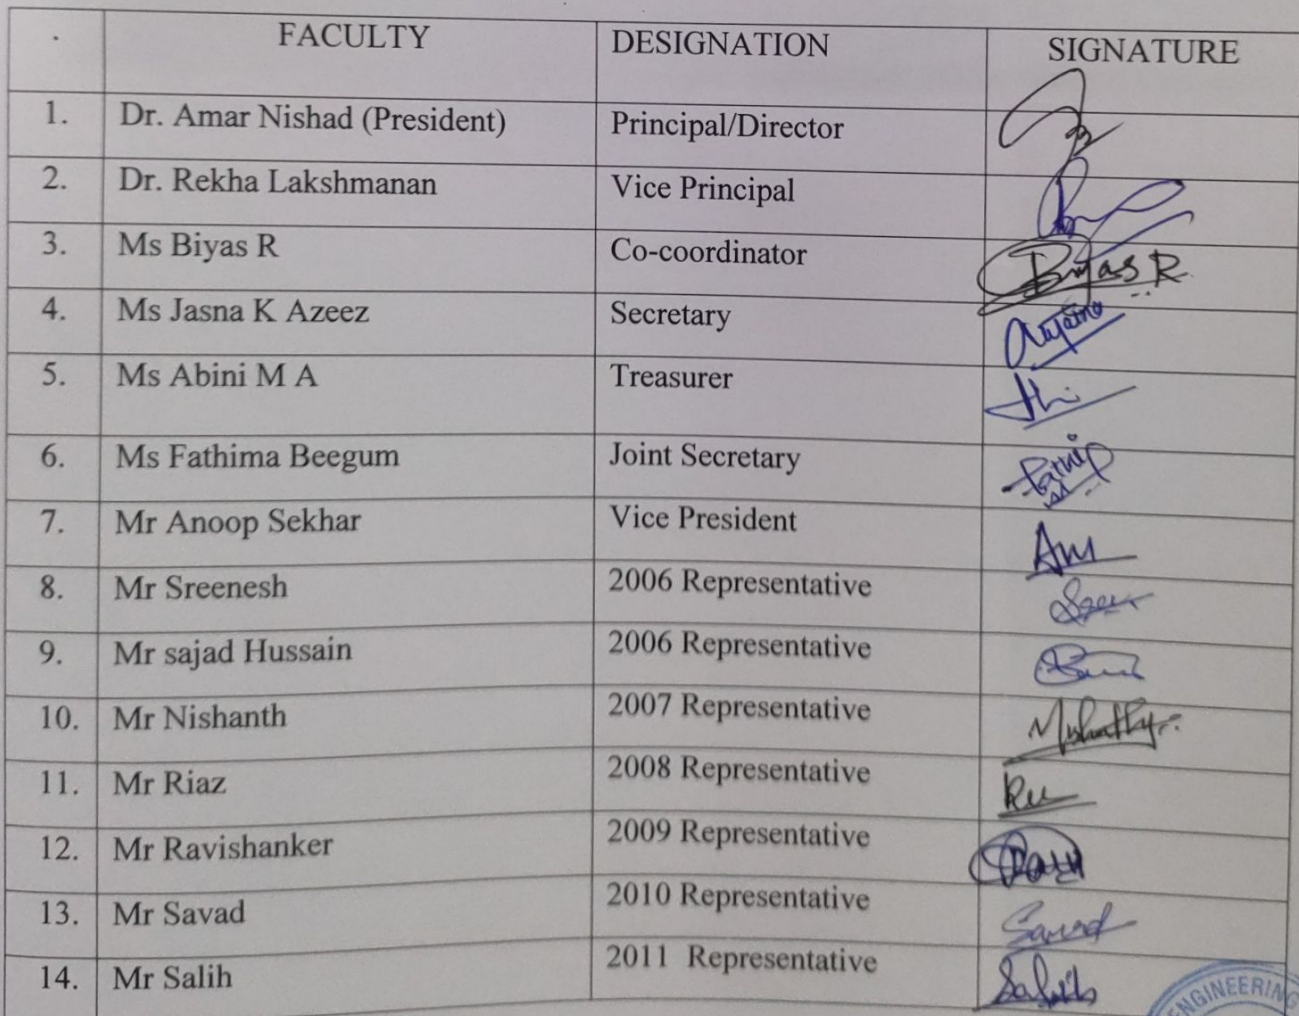 FACULTY DESIGNATION SIGNATURE
1. Dr. Amar Nishad (President) Principal/Director
2. Dr. Rekha Lakshmanan Vice Principal
3. Ms Biyas R Co-coordinator Biyas R
4. Ms Jasna K Azeez Secretary
5. Ms Abini M A Treasurer
6. Ms Fathima Beegum Joint Secretary
7. Mr Anoop Sekhar Vice President
8. Mr Sreenesh 2006 Representative
9. Mr sajad Hussain 2006 Representative
10. Mr Nishanth 2007 Representative
11. Mr Riaz 2008 Representative
12. Mr Ravishanker 2009 Representative
13. Mr Savad 2010 Representative Savad
14. Mr Salih 2011 Representative Salih
ENGINEERING